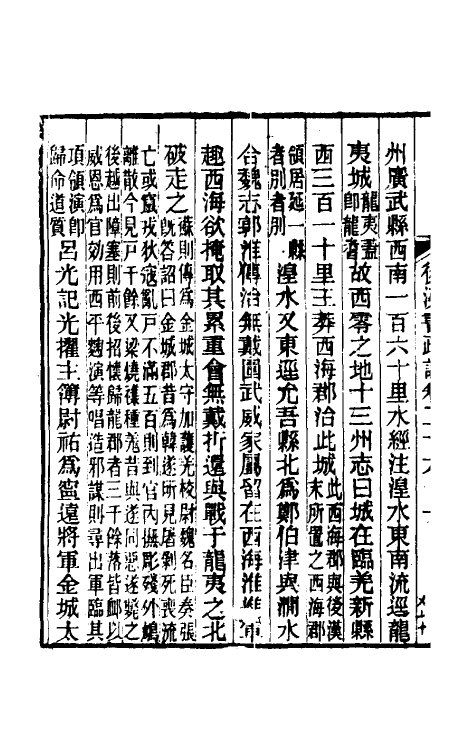 後漢書疏證卷二十六
州廣武縣西南一百六十里水經注湟水東南流逕龍
夷城龍夷蓋即龍耆故西零之地十三州志曰城在臨羌新縣
西三百一十里王莽西海郡治此城此西海郡與後漢末所置之西海郡
領居延一縣者別者別湟水又東逕允吾縣北為鄭伯津與澗水
合魏志郭淮傳治無戴圍武威家屬留在西海淮進
趣西海欲掩取其累重會無戴折還與戰于龍夷之北
破走之蘇則傳為金城太守加護羌校尉魏名臣奏張既答詔曰金城郡昔為韓遂所見屠剝死喪流
亡或竄戎狄寇亂戶不滿五百則到官內撫彫殘外鳩離散今見戶千餘又梁燒雜種羌昔與遂同惡遂斃之
後越出障塞則前後招懷歸龍郡者三千餘落皆卹以威恩為官効用西平麴演等唱造邪謀則尋出軍臨其
項領演即歸命道質呂光記光擢主簿尉祐為寧遠將軍金城太